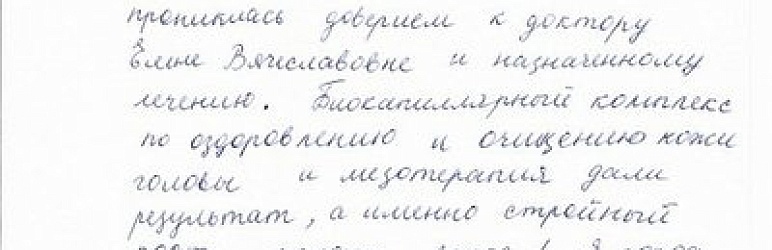 прониклась доверием к доктору
Елене Вячеславовне и назначенному
лечению. Биокапиллярный комплекс
по оздоровлению и очищению кожи
головы и мезотерапия дали
результат, а именно стройный